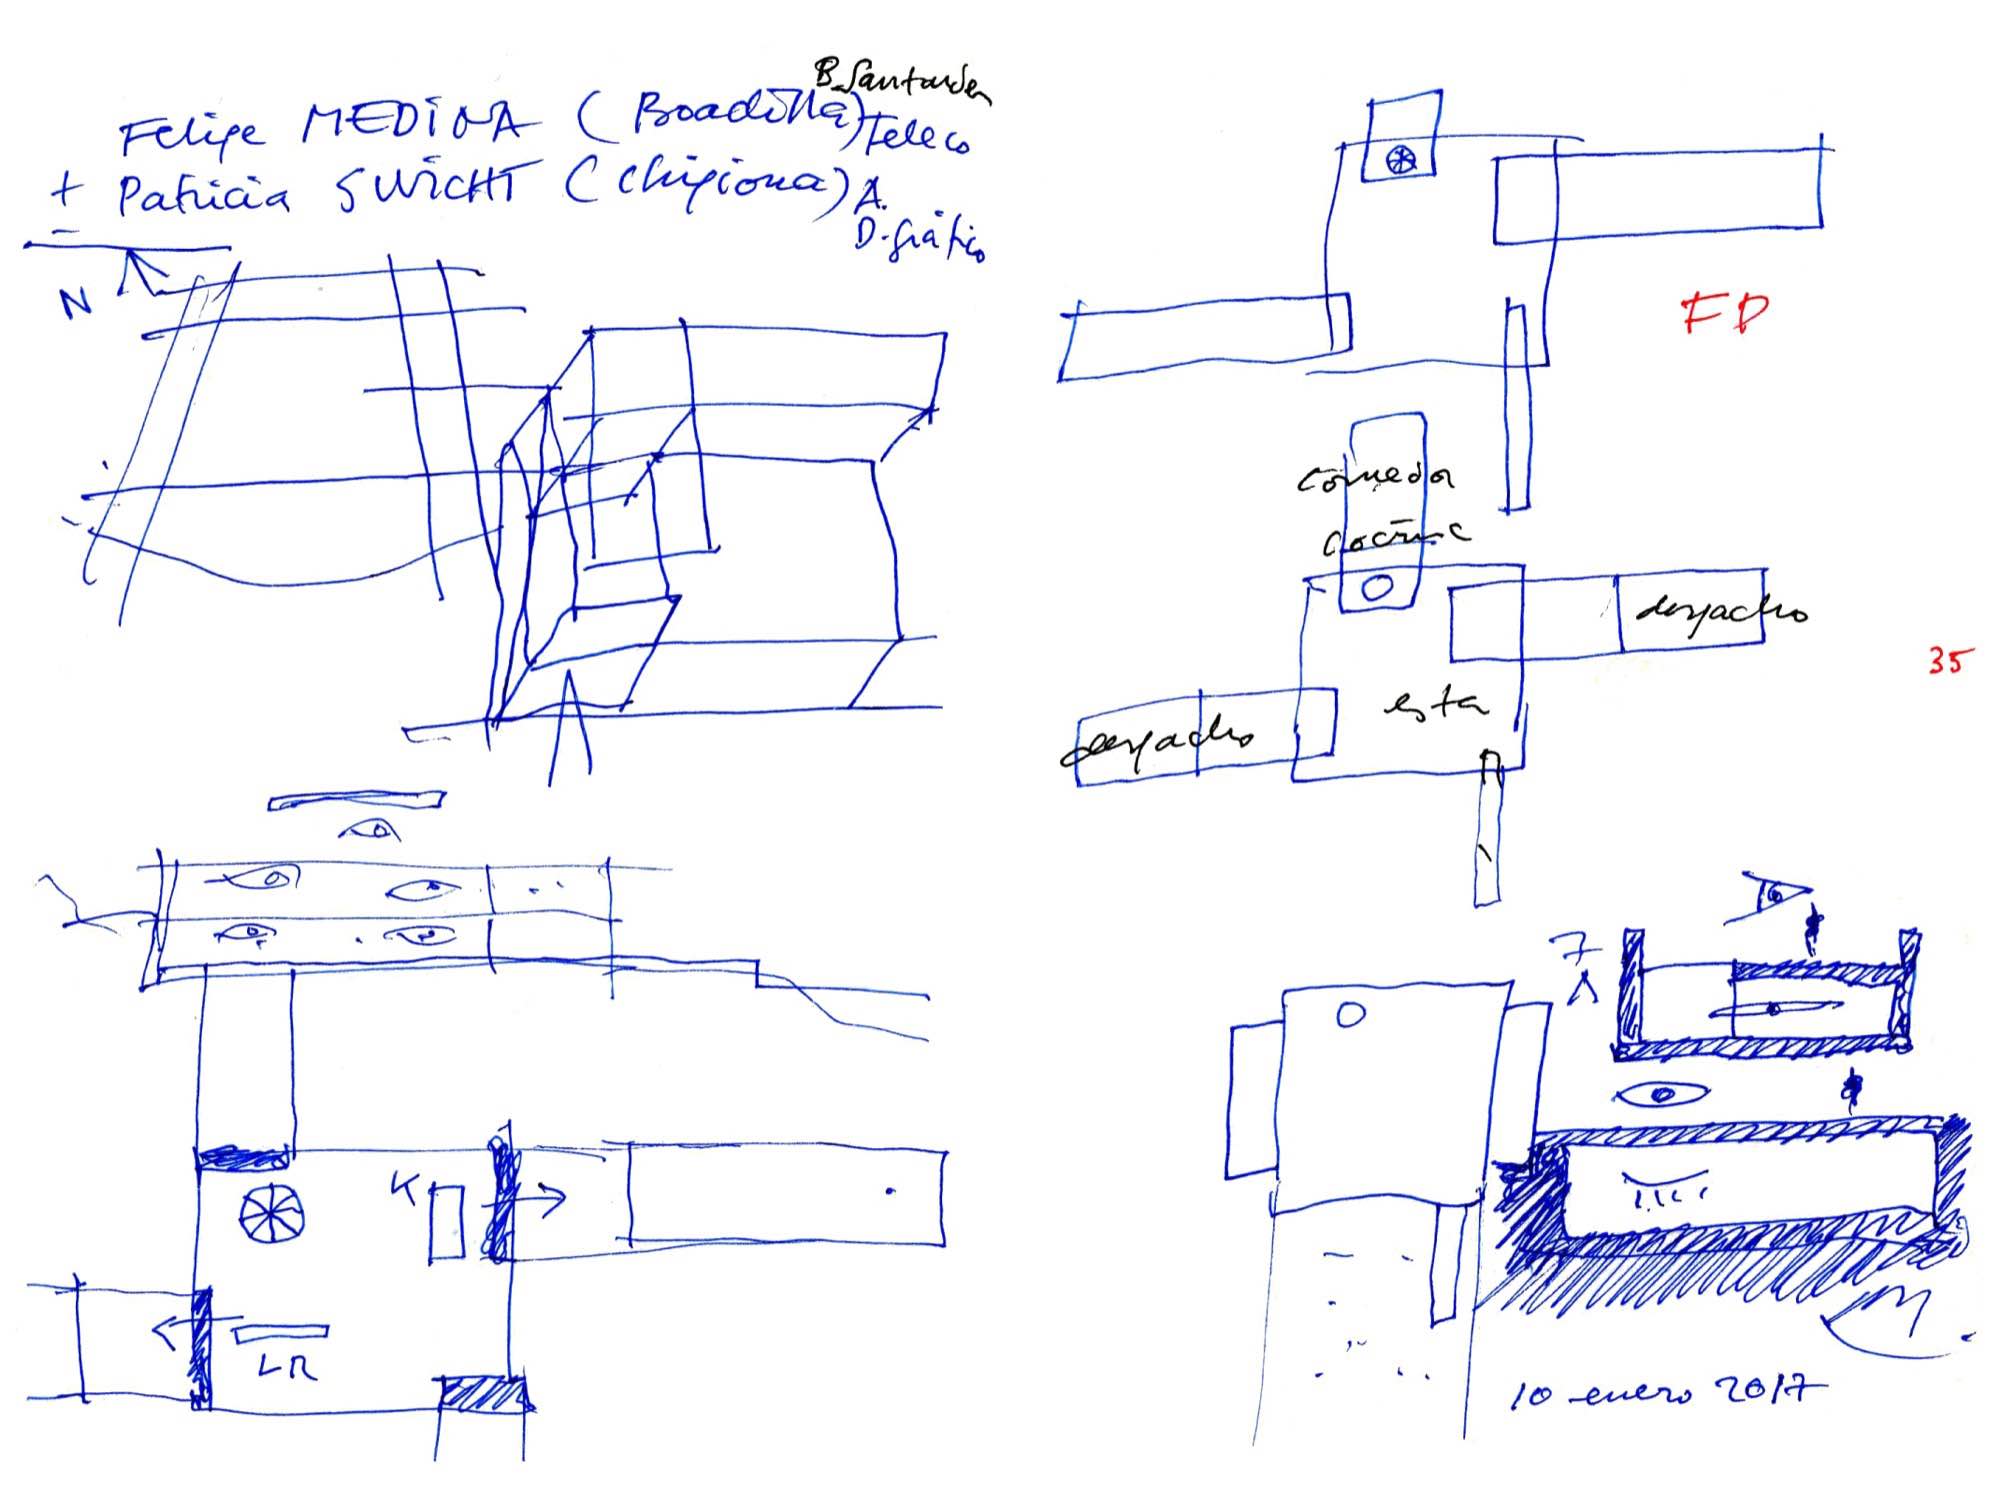 B. Santander
Felipe MEDINA (Boadilla) Teleco
+ Patricia SWICHT (Chipiona) A.
D. gráfico
N
FD
comedor
cocina
despacho
35
esta
despacho
K
LR
10 enero 2017